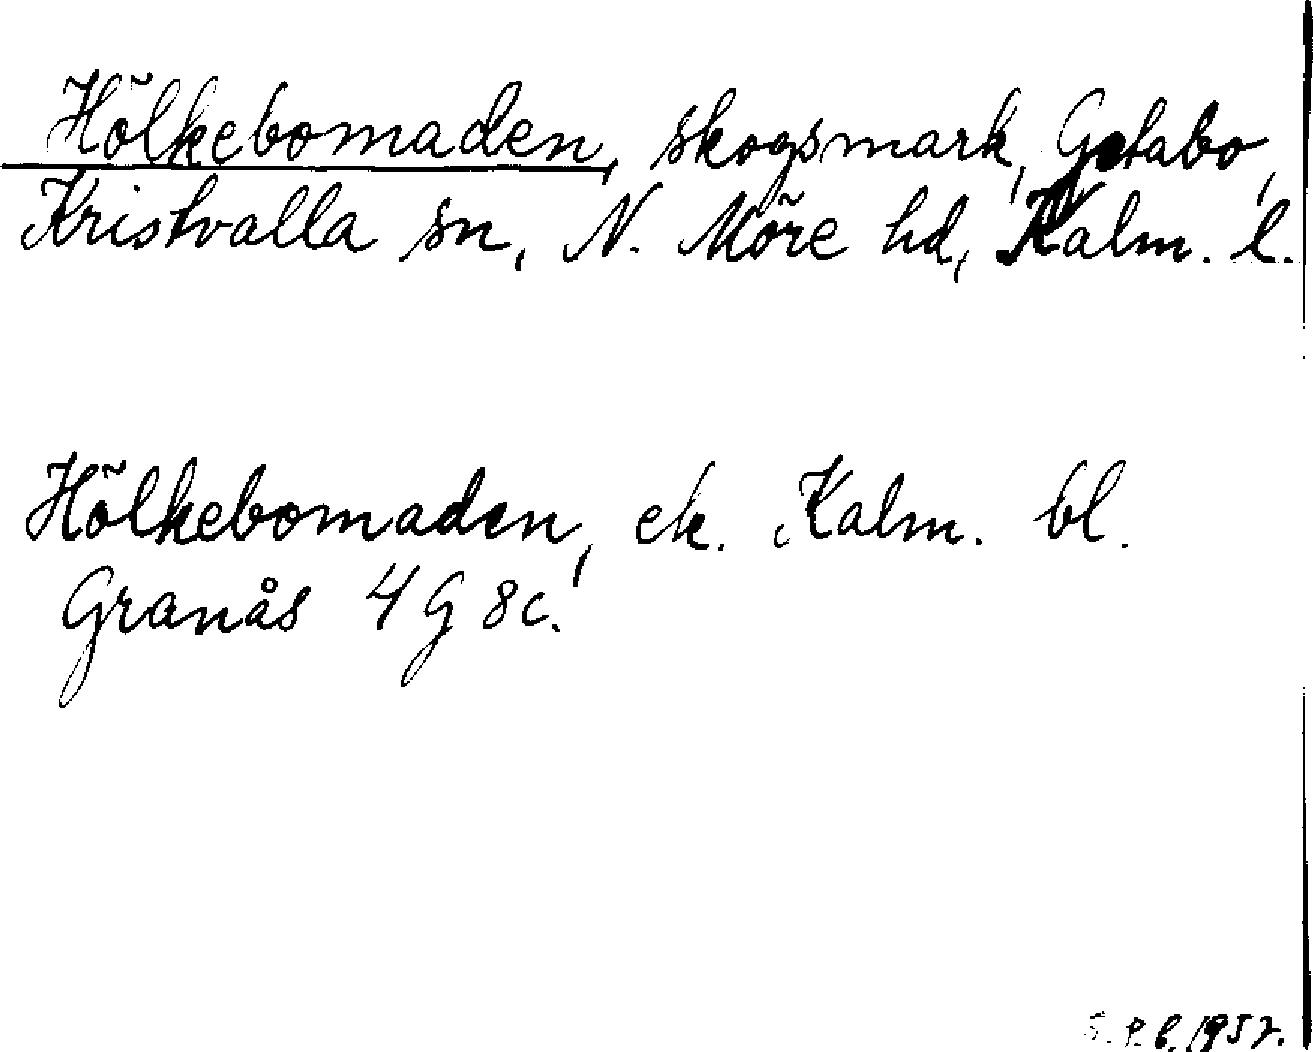 Hölkebomaden, skogsmark, Getabo,
Kristvalla sn, N. Möre hd, Kalm. l.
Hölkebomaden, ek. Kalm. bl.
Granås 4 G 8c.
S.P.B. 1957.